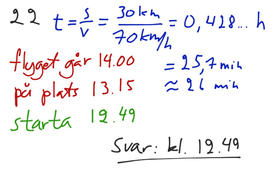 22 t = s/v = 30 km / 70 km/h = 0,428... h
flyget går 14.00 = 25,7 min
på plats 13.15 ≈ 26 min
starta 12.49
Svar: kl. 12.49